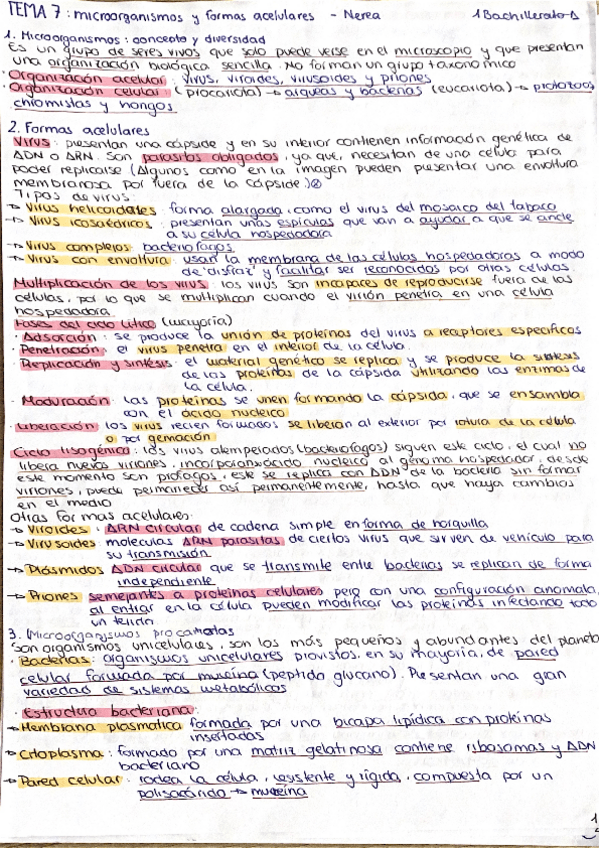 TEMA 7: microorganismos y formas acelulares - Nerea 1 Bachillerato A
1. Microorganismos: concepto y diversidad
Es un grupo de seres vivos que solo puede verse en el microscopio y que presentan
una organización biológica sencilla. No forman un grupo taxonómico
· Organización acelular: virus, viroides, virusoides y priones
· Organización celular (procariota) → arqueas y bacterias (eucariota) → protozoos,
chromistas y hongos
2. Formas acelulares
Virus: presentan una cápside y en su interior contienen información genética de
ADN o ARN. Son parasitos obligados, ya que, necesitan de una celula para
poder replicarse (Algunos como en la imagen pueden presentar una envoltura
membranosa por fuera de la cápside.)
Tipos de virus:
→ Virus helicoidales: forma alargada, como el virus del mosaico del tabaco
→ Virus icosaédricos: presentan unas espículas que van a ayudar a que se ancle
a su celula hospedadora
→ Virus complejos: bacteriofagos
→ Virus con envoltura: usan la membrana de las células hospedadoras a modo
de disfraz y facilitar ser reconocidos por otras células.
Multiplicación de los virus: los virus son incapaces de reproducirse fuera de las
células, por lo que se multiplican cuando el virión penetra en una celula
hospedadora
Fases del ciclo lítico (mayoría)
· Adsorción: se produce la unión de proteinas del virus a receptores especificos
· Penetración: el virus penetra en el interior de la celula.
· Replicación y síntesis: el material genético se replica y se produce la sintesis
de las proteinas de la cápsida utilizando las enzimas de
la celula.
· Maduración: las proteinas se unen formando la cápsida, que se ensambla
con el ácido nucleico
· Liberación: los virus recien formados se liberan al exterior por rotura de la célula
o por gemación
Ciclo lisogénico: los virus atemperados (bacteriofagos) siguen este ciclo, el cual no
libera nuevos viriones, incorporan ácido nucleico al genoma hospedador, desde
este momento son profagos, este se replica con ADN de la bacteria sin formar
viriones, puede permanecer así permanentemente, hasta que haya cambios
en el medio
Otras formas acelulares:
→ Viroides: ARN circular de cadena simple en forma de horquilla
→ Virusoides: moleculas ARN parasitas de ciertos virus que sirven de vehículo para
su transmisión
→ Plásmidos ADN circular que se transmite entre bacterias se replican de forma
independiente
→ Priones semejantes a proteinas celulares pero con una configuración anomala,
al entrar en la célula pueden modificar las proteinas infectando todo
un tejido
3. Microorganismos procariotas
Son organismos unicelulares, son los más pequeños y abundantes del planeta
· Bacterias: organismos unicelulares provistos, en su mayoría, de pared
celular formada por mureína (peptido glucano). Presentan una gran
variedad de sistemas metabólicos
Estructura bacteriana:
→ Membrana plasmatica formada por una bicapa lipídica con proteínas
insertadas
→ Citoplasma: formado por una matriz gelatinosa contiene ribosomas y ADN
bacteriano
→ Pared celular: rodea la célula, resistente y rígida, compuesta por un
polisacárido → mureína
1